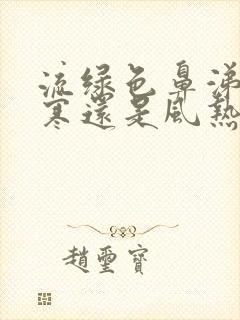 流绿色鼻涕
寒還是風熱
趙璽寶